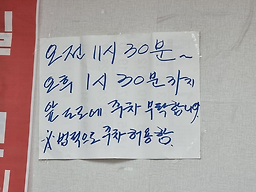 오전 11시 30분~
오후 1시 30분까지
앞 도로에 주차 부탁합니다.
※ 법적으로 주차 허용함.